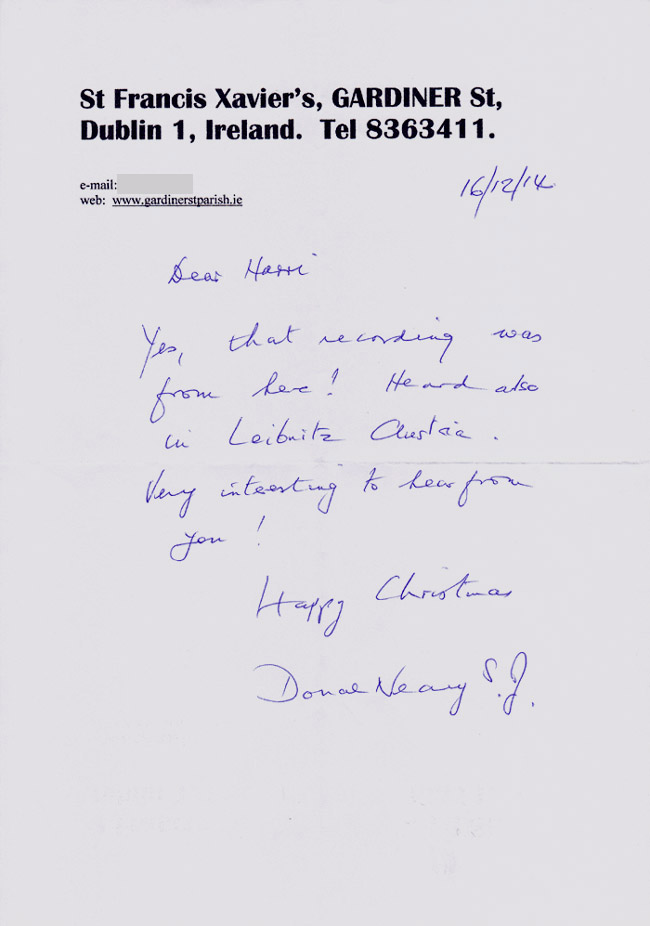 St Francis Xavier's, GARDINER St,
Dublin 1, Ireland. Tel 8363411.
e-mail:
web: www.gardinerstparish.ie
16/12/14
Dear Harri
Yes, that recording was
from here! Heard also
in Leibnitz Austria.
Very interesting to hear from
you!
Happy Christmas
Donal Neary S.J.